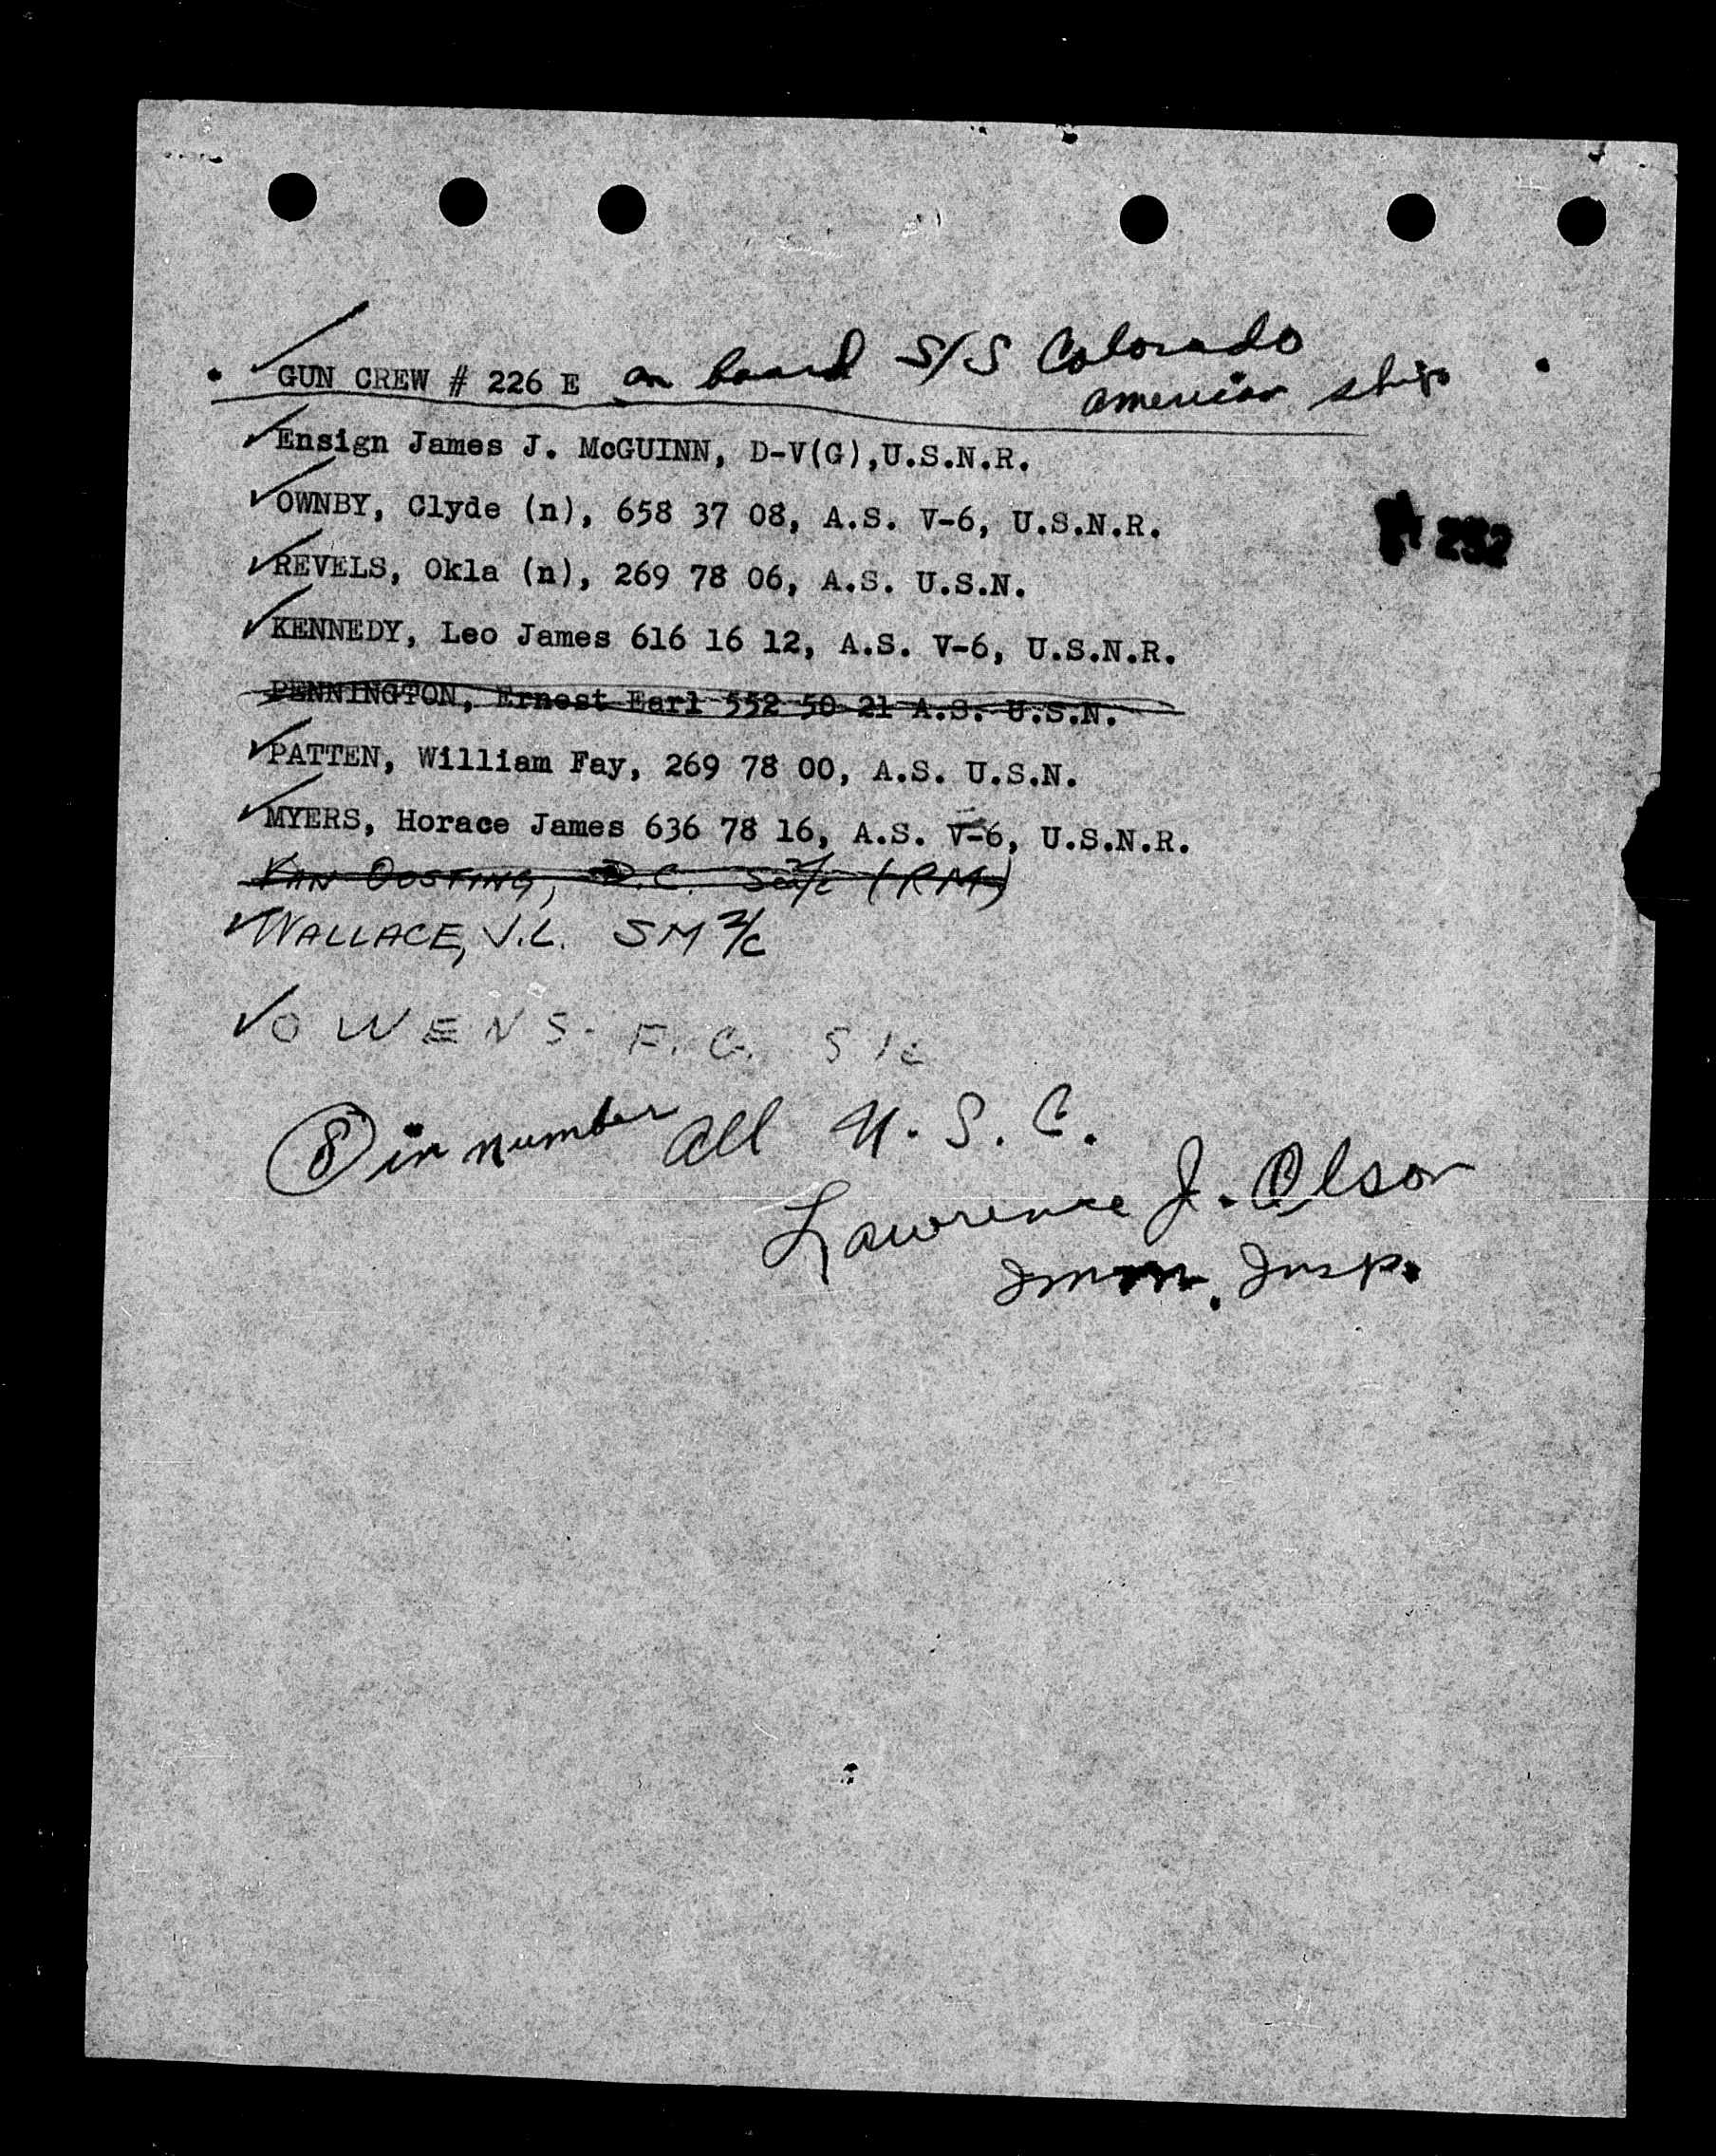 GUN CREW # 226 E on board S/S Colorado
american ship
Ensign James J. McGUINN, D-V(G),U.S.N.R.
OWNBY, Clyde (n), 658 37 08, A.S. V-6, U.S.N.R.
232
REVELS, Okla (n), 269 78 06, A.S. U.S.N.
KENNEDY, Leo James 616 16 12, A.S. V-6, U.S.N.R.
PENNINGTON, Ernest Earl 552 50 21 A.S. U.S.N.
PATTEN, William Fay, 269 78 00, A.S. U.S.N.
MYERS, Horace James 636 78 16, A.S. V-6, U.S.N.R.
VAN OOSTING, D.C. Sea 2/c (RM)
WALLACE, V.L. SM 2/c
OWENS. F. G. S1c
8 in number all U.S.C.
Lawrence J. Olson
Imm. Insp.